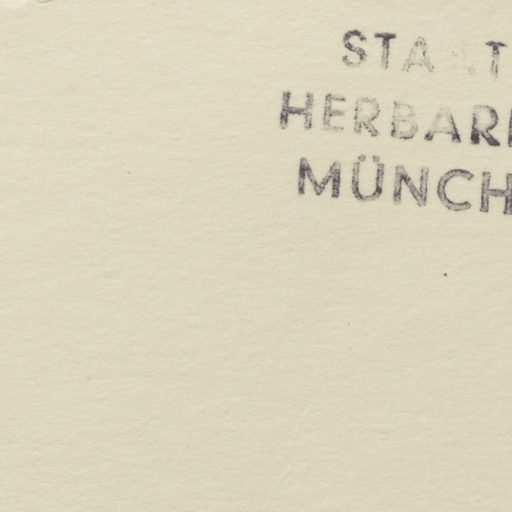 STAAT
HERBAR
MÜNCH